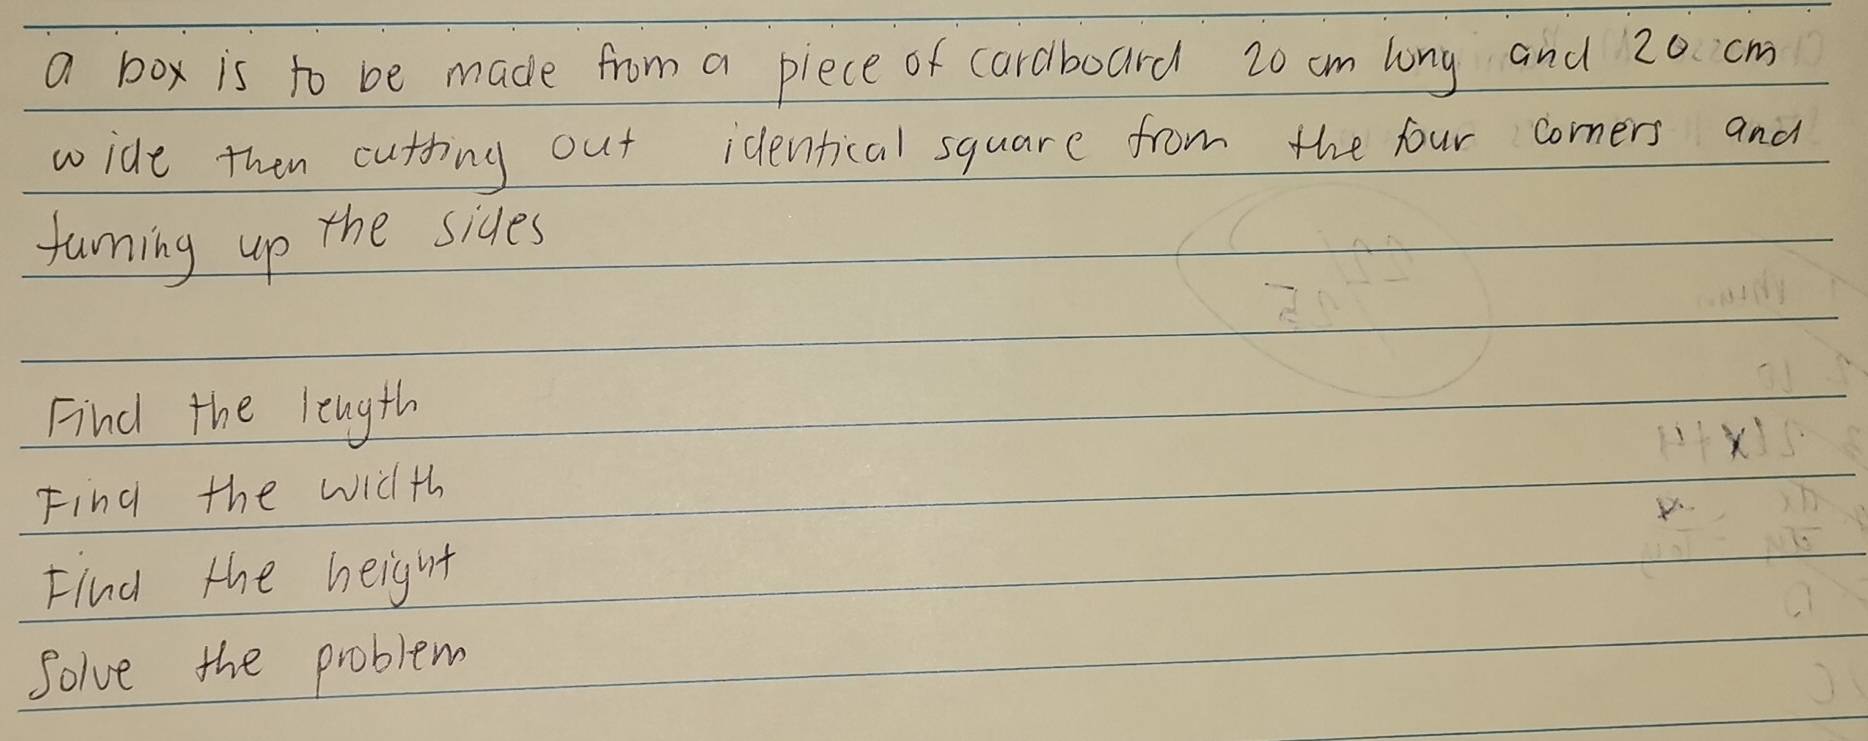 a box is to be made from a piece of cardboard 20 cm long and 20 cm
wide then cutting out identical square from the four corners and
turning up the sides
Find the length
Find the width
Find the height
Solve the problem